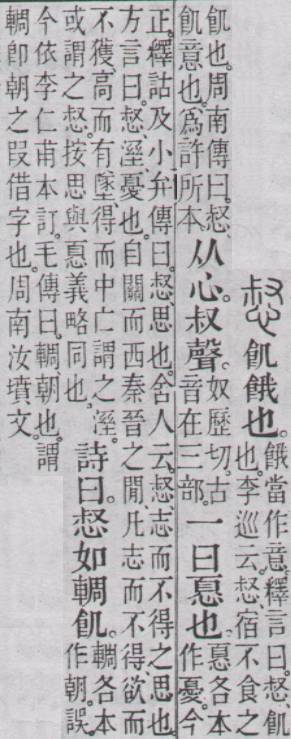 惄飢餓也。餓當作意。釋言曰。惄、飢
也。李巡云。惄、宿不食之
飢也。周南傳曰。惄、
飢意也。爲許所本。从心。叔聲。奴歷切。古
音在三部。一曰惪也。惪各本
作憂。今
正。釋詁及小弁傳曰。惄、思也。舍人云。惄、志而不得之思也。
方言曰。惄、溼、憂也。自關而西秦晉之閒。凡志而不得。欲而
不獲。高而有墜。得而中亡謂之溼。
或謂之惄。按思與惪義略同也。詩曰。惄如輖飢。輖各本
作朝。誤。
今依李仁甫本訂。毛傳曰。輖、朝也。謂
輖卽朝之叚借字也。周南汝墳文。